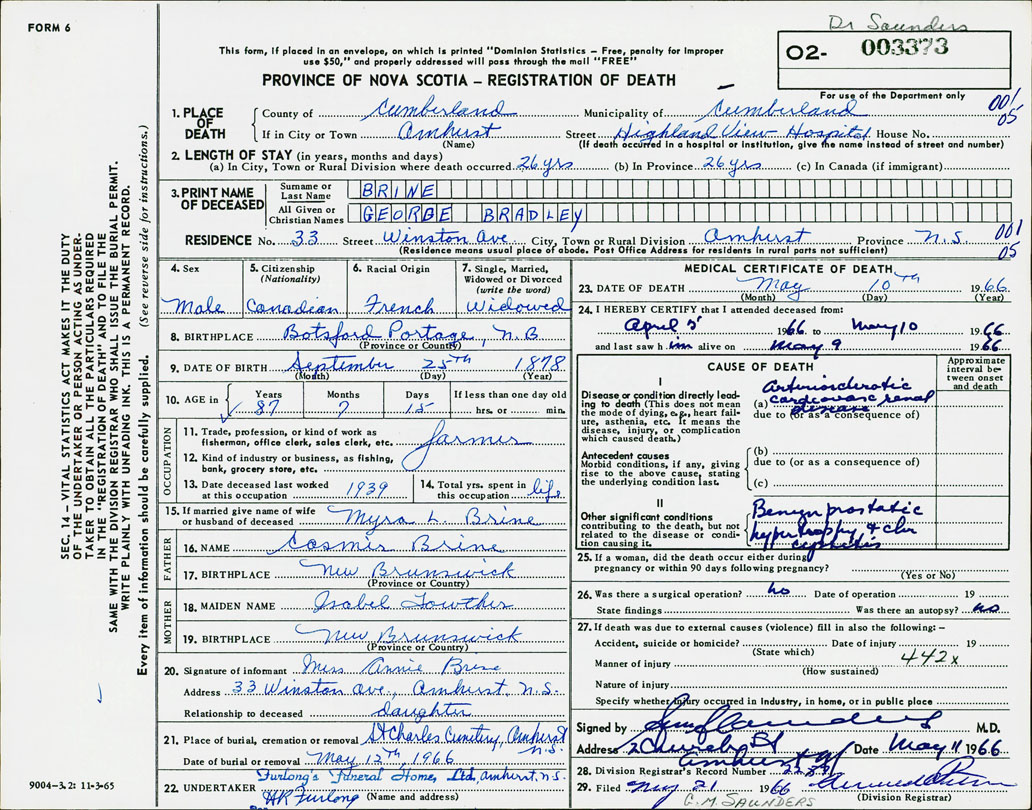 FORM 6
Dr Saunders
02- 003373
This form, if placed in an envelope, on which is printed "Dominion Statistics – Free, penalty for improper
use $50," and properly addressed will pass through the mail "FREE"
PROVINCE OF NOVA SCOTIA – REGISTRATION OF DEATH
For use of the Department only
001
05
1. PLACE OF DEATH
County of Cumberland Municipality of Cumberland
If in City or Town Amhurst Street Highland View Hospital House No.
(Name) (If death occurred in a hospital or institution, give the name instead of street and number)
2. LENGTH OF STAY (in years, months and days)
(a) In City, Town or Rural Division where death occurred 26 yrs (b) In Province 26 yrs (c) In Canada (if immigrant)
3. PRINT NAME OF DECEASED
Surname or Last Name BRINE
All Given or Christian Names GEORGE BRADLEY
RESIDENCE No. 33 Street Winston Ave. City, Town or Rural Division Amhurst Province N.S
001
05
(Residence means usual place of abode. Post Office Address for residents in rural parts not sufficient)
4. Sex
Male
5. Citizenship
(Nationality)
Canadian
6. Racial Origin
French
7. Single, Married,
Widowed or Divorced
(write the word)
Widowed
8. BIRTHPLACE Botsford Portage, N.B
(Province or Country)
9. DATE OF BIRTH September 25th 1878
(Month) (Day) (Year)
10. AGE in
Years Months Days If less than one day old
87 7 15 hrs. or min.
OCCUPATION
11. Trade, profession, or kind of work as
fisherman, office clerk, sales clerk, etc. farmer
12. Kind of industry or business, as fishing,
bank, grocery store, etc.
13. Date deceased last worked
at this occupation 1939
14. Total yrs. spent in
this occupation life
15. If married give name of wife
or husband of deceased Myra L. Brine
FATHER
16. NAME Cosmir Brine
17. BIRTHPLACE New Brunswick
(Province or Country)
MOTHER
18. MAIDEN NAME Isabel Towther
19. BIRTHPLACE New Brunswick
(Province or Country)
20. Signature of informant Miss Annie Brine
Address 33 Winston Ave., Amhurst, N.S.
Relationship to deceased daughter
21. Place of burial, cremation or removal St Charles Cemetery, Amherst
N.S.
Date of burial or removal May 12th 1966
22. UNDERTAKER Furlong's Funeral Home, Ltd, Amhurst, N.S.
HR Furlong (Name and address)
MEDICAL CERTIFICATE OF DEATH
23. DATE OF DEATH May 10th 1966
(Month) (Day) (Year)
24. I HEREBY CERTIFY that I attended deceased from:
April 5 1966 to May 10 1966
and last saw him alive on May 9 1966
CAUSE OF DEATH
Approximate
interval between
onset
and death
I
Disease or condition directly leading
to death (This does not mean
the mode of dying, e.g., heart failure,
asthenia, etc. It means the
disease, injury, or complication
which caused death.)
Arteriosclerotic
(a) cardiovasc renal
disease
due to (or as a consequence of)
Antecedent causes
Morbid conditions, if any, giving
rise to the above cause, stating
the underlying condition last.
(b)
due to (or as a consequence of)
(c)
II
Other significant conditions
contributing to the death, but not
related to the disease or condition
causing it.
Benign prostatic
hypertrophy & chr
cystitis
25. If a woman, did the death occur either during
pregnancy or within 90 days following pregnancy?
(Yes or No)
26. Was there a surgical operation? no Date of operation 19
State findings Was there an autopsy? no
27. If death was due to external causes (violence) fill in also the following: –
Accident, suicide or homicide? Date of injury 19
(State which)
442x
Manner of injury
(How sustained)
Nature of injury
Specify whether injury occurred in Industry, in home, or in public place
Signed by M.D.
Address 2 Church St Date May 11 1966
Amhurst
28. Division Registrar's Record Number
29. Filed May 21 1966
(Division Registrar)
G.M. SAUNDERS
9004–3.2: 11-3-65
SEC. 14 – VITAL STATISTICS ACT MAKES IT THE DUTY
OF THE UNDERTAKER OR PERSON ACTING AS UNDERTAKER
TO OBTAIN ALL THE PARTICULARS REQUIRED
IN THE "REGISTRATION OF DEATH" AND TO FILE THE
SAME WITH THE DIVISION REGISTRAR WHO SHALL ISSUE THE BURIAL PERMIT.
WRITE PLAINLY WITH UNFADING INK. THIS IS A PERMANENT RECORD.
Every item of information should be carefully supplied. (See reverse side for instructions.)